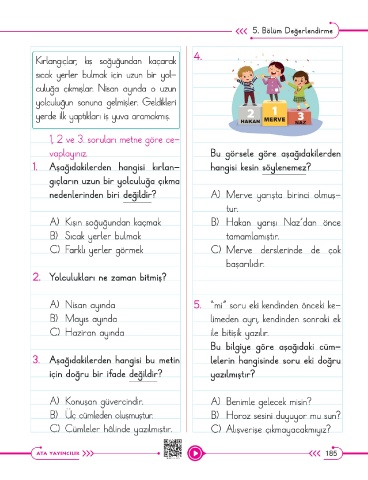 5. Bölüm Değerlendirme
Kırlangıçlar, kış soğuğundan kaçarak
sıcak yerler bulmak için uzun bir yol-
culuğa çıkmışlar. Nisan ayında o uzun
yolculuğun sonuna gelmişler. Geldikleri
yerde ilk yaptıkları iş yuva aramakmış.
1, 2 ve 3. soruları metne göre ce-
vaplayınız.
1. Aşağıdakilerden hangisi kırlan-
gıçların uzun bir yolculuğa çıkma
nedenlerinden biri değildir?
A) Kışın soğuğundan kaçmak
B) Sıcak yerler bulmak
C) Farklı yerler görmek
2. Yolculukları ne zaman bitmiş?
A) Nisan ayında
B) Mayıs ayında
C) Haziran ayında
3. Aşağıdakilerden hangisi bu metin
için doğru bir ifade değildir?
A) Konuşan güvercindir.
B) Üç cümleden oluşmuştur.
C) Cümleler hâlinde yazılmıştır.
4.
2 1 3
HAKAN MERVE NAZ
Bu görsele göre aşağıdakilerden
hangisi kesin söylenemez?
A) Merve yarışta birinci olmuş-
tur.
B) Hakan yarışı Naz'dan önce
tamamlamıştır.
C) Merve derslerinde de çok
başarılıdır.
5. "mi" soru eki kendinden önceki ke-
limeden ayrı, kendinden sonraki ek
ile bitişik yazılır.
Bu bilgiye göre aşağıdaki cüm-
lelerin hangisinde soru eki doğru
yazılmıştır?
A) Benimle gelecek misin?
B) Horoz sesini duyuyor mu sun?
C) Alışverişe çıkmayacakmıyız?
ATA YAYINCILIK
185